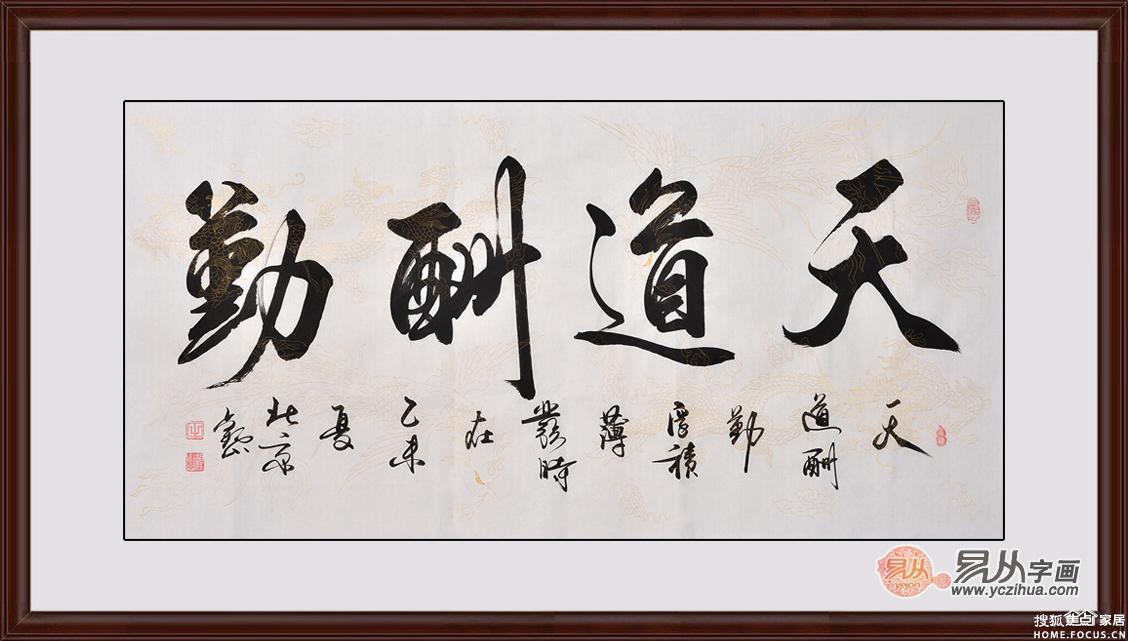 天道酬勤
天道酬勤厚積薄發時在乙未夏北京
易从
易从字画
www.yczihua.com
搜狐焦点家居
HOME.FOCUS.CN